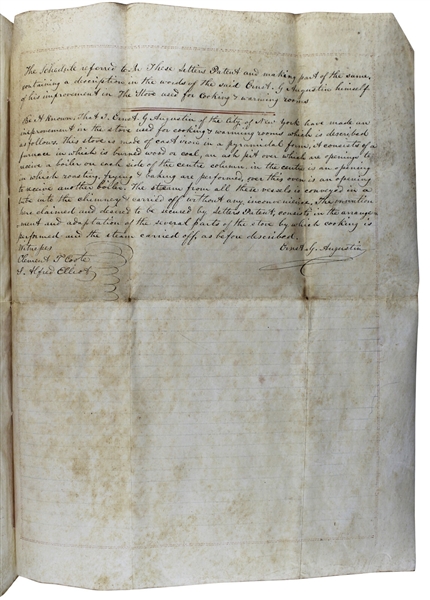 The Schedule referred to in These Letters Patent and making part of the same,
containing a description in the words of the said Ernst G. Augustin himself
of his improvement in The Stove used for Cooking & warming rooms
Be it Known, That I Ernst G. Augustin of the City of New York have made an
improvement in the stove used for cooking & warming rooms which is described
as follows. this stove is made of cast iron in a pyramidal form, it consists of a
furnace in which is burned wood or coal, an ash pit over which are openings to
receive a boiler on each side of the centre column. in the centre is an opening
in which roasting, frying & baking are performed, over this oven is an opening
to receive another boiler. The steam from all these vessels is conveyed in a
tube into the chimney & carried off without any inconvenience. The invention
here claimed and desired to be secured by letters Patent, consists in the arrange-
ment and adaptation of the several parts of the stove by which cooking is
performed and the steam carried off, as before described
Witnesses Ernst G. Augustin
Clement T. Coote
J. Alfred Elliot